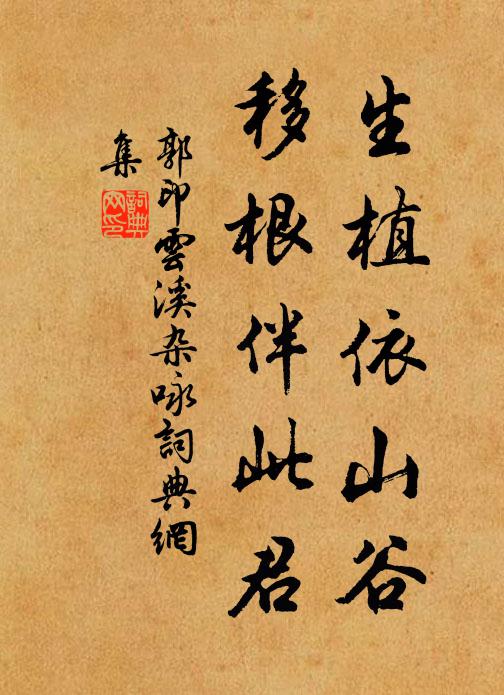 生植依山谷
移根伴此君
郭印雲溪杂咏詞典網
集
詞典
网印